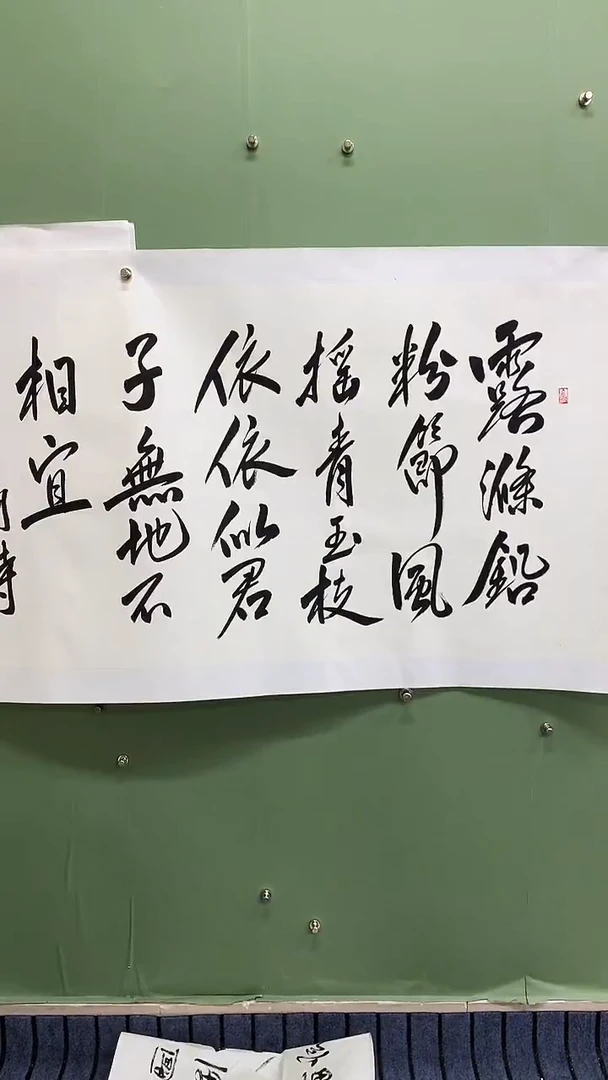 露滌鉛
粉節風
搖青玉枝
依依似君
子無地不
相宜